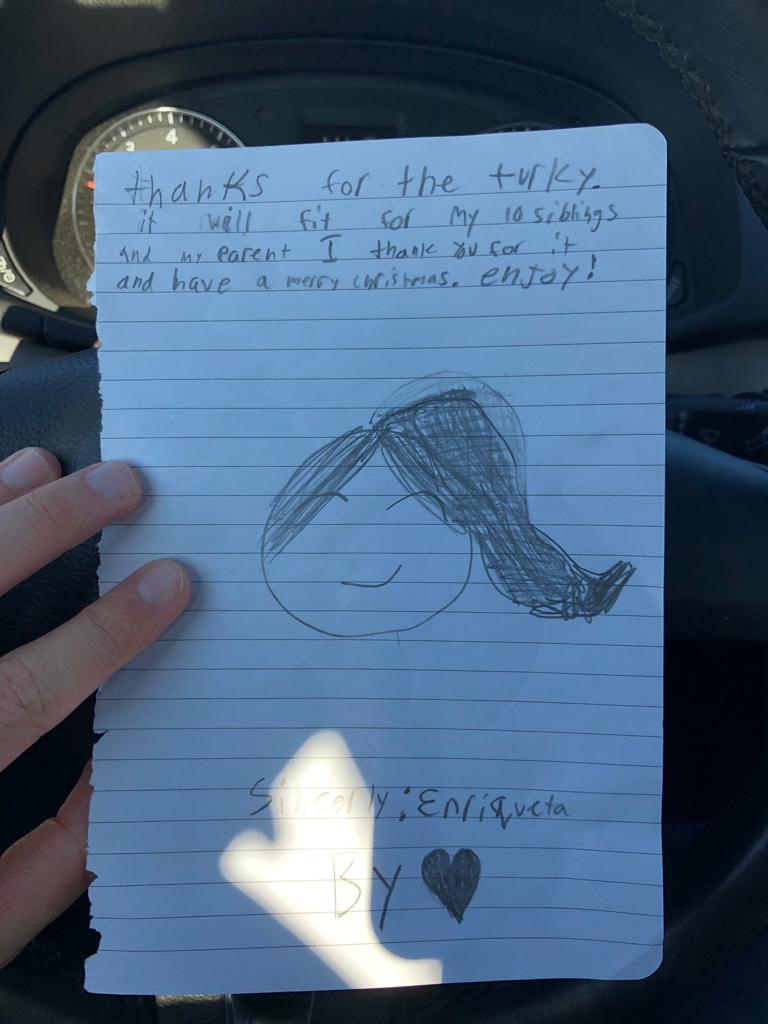 3 4
thanks for the turky.
it will fit for My 10 siblings
And my parent I thank you for it
and have a merry christmas. enjoy!
Sincerly; Enriqueta
By ♥